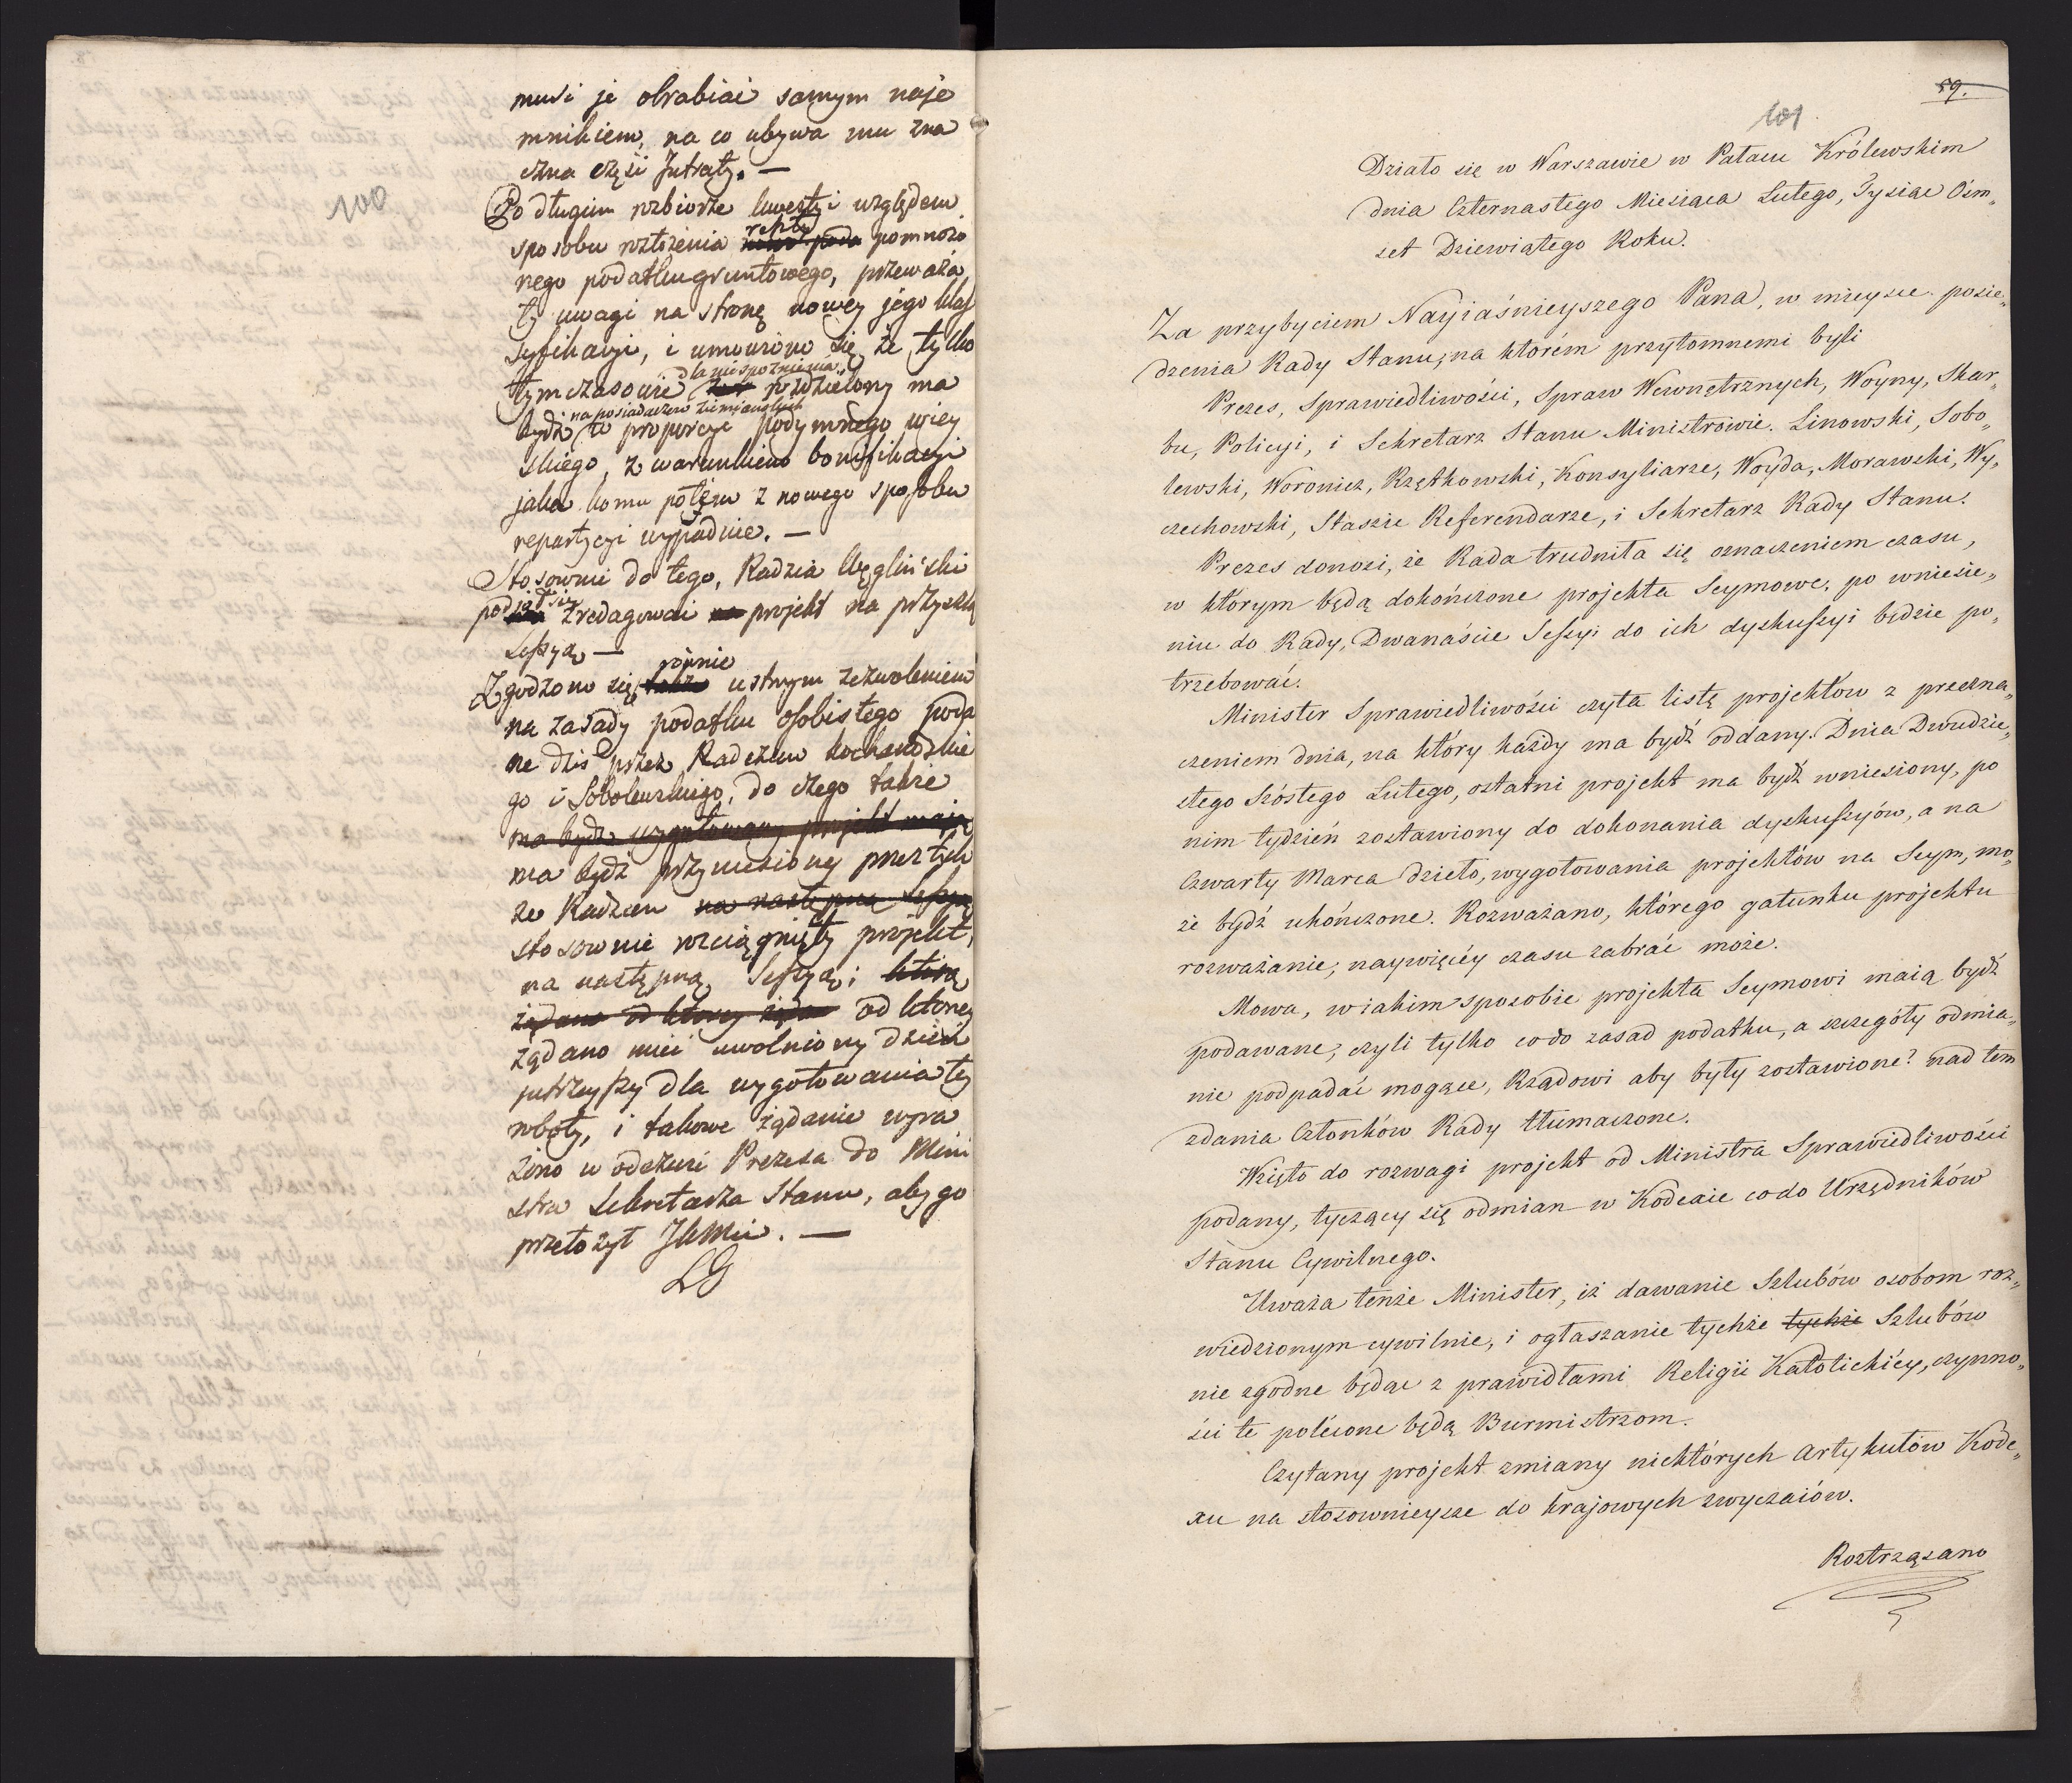 100
musi je obrabiać samym naje
mnikiem, na co ubywa mu zna
czna część Jntraty. —
Po długim rozbiorze kwestyi względem
sposobu rozłożenia repty pomnożo
nego podatku gruntowego, przeważa
ły uwagi na stronę nowey jego klas
syfikacyi, i umówiono się że tylko
dla niespoznienia
tymczasowie rozdzielony ma
na posiadaczów ziemiańskich
bydź w proporcyi podymnego wiey
skiego, z warunkiem bonyfikacyi
jaka komu potém z nowego sposobu
repartycyi wypadnie. —
Stosownie do tego, Radzca Węgliński
podjął się zredagować na projekt na przyszłą
Sessyą —
Zgodzono się także róẃnie ustnym zezwoleniem
na zasady podatku osobistego poda
ne dziś przez Radzców Kochanowskie
go i Sobolewskiego, do czego także
ma bydz wygotowany projekt mają
ma bydź przyniesiony przez tych
że Radzców na następną Sessyą
stosownie rozciągnięty projekt,
na następną Sessyą; którą
żądano od ktorey żąda od ktorey
żądano mieć uwolniony dzień
jutrzeyszy dla wygotowania tey
roboty, i takowe żądanie wyra
żono w odezwie Prezesa do Mini
stra Sekretarza Stanu, aby go
przełożył JKMci. —
LG
59.
101
Działo się w Warszawie w Pałacu Królewskim
dnia Czternastego Miesiąca Lutego, Tysiąc Ośm„
set Dziewiątego Roku.
Za przybyciem Nayiaśnieyszego Pana, w mieysce posie„
dzenia Rady Stanu, na którém przytomnemi byli
Prezes, Sprawiedliwości, Spraw Wewnętrznych, Woyny, Skar„
bu, Policyi, i Sekretarz Stanu Ministrowie. Linowski, Sobo„
lewski, Woronicz, Rzętkowski, Konsyliarze, Woyda, Morawski, Wy„
czechowski, Staszic Referendarze, i Sekretarz Rady Stanu.
Prezes donosi, że Rada trudniła się oznaczeniem czasu,
w którym będą dokończone projekta Seymowe, po wniesie„
niu do Rady, Dwanaście Sessyi do ich dyskussyi będzie po„
trzebować.
Minister Sprawiedliwości czyta listę projektów z przezna„
czeniem dnia, na który każdy ma bydź oddany. Dnia Dwudzie„
stego Szóstego Lutego, ostatni projekt ma bydź wniesiony, po
nim tydzień zostawiony do dokonania dyskussyów, a na
Czwarty Marca dzieło, wygotowania projektów na Seym, mo„
że bydź ukończone. Rozważano, którego gatunku projektu
rozważanie, naywięcéy czasu zabrać może.
Mowa, w iakim sposobie projekta Seymowi maią bydź
podawane, czyli tylko co do zasad podatku, a szczegóły odmia„
nie podpadać mogące, Rządowi aby były zostawione? nad tem
zdania Członków Rady tłumaczone.
Wzięto do rozwagi projekt od Ministra Sprawiedliwości
podany, tyczący się odmian w Kodexie co do Urzędników
Stanu Cywilnego.
Uważa tenże Minister, iż dawanie Szlubów osobom roz„
wiedzionym cywilnie, i ogłaszanie tychże tychże Szlubów
nie zgodne będąc z prawidłami Religii Katolickiéy, czynno„
ści te polécone będą Burmistrzom.
Czytany projekt zmiany niektórych artykułów Kode„
xu na stosownieysze do krajowych zwyczaiów.
Roztrząsano